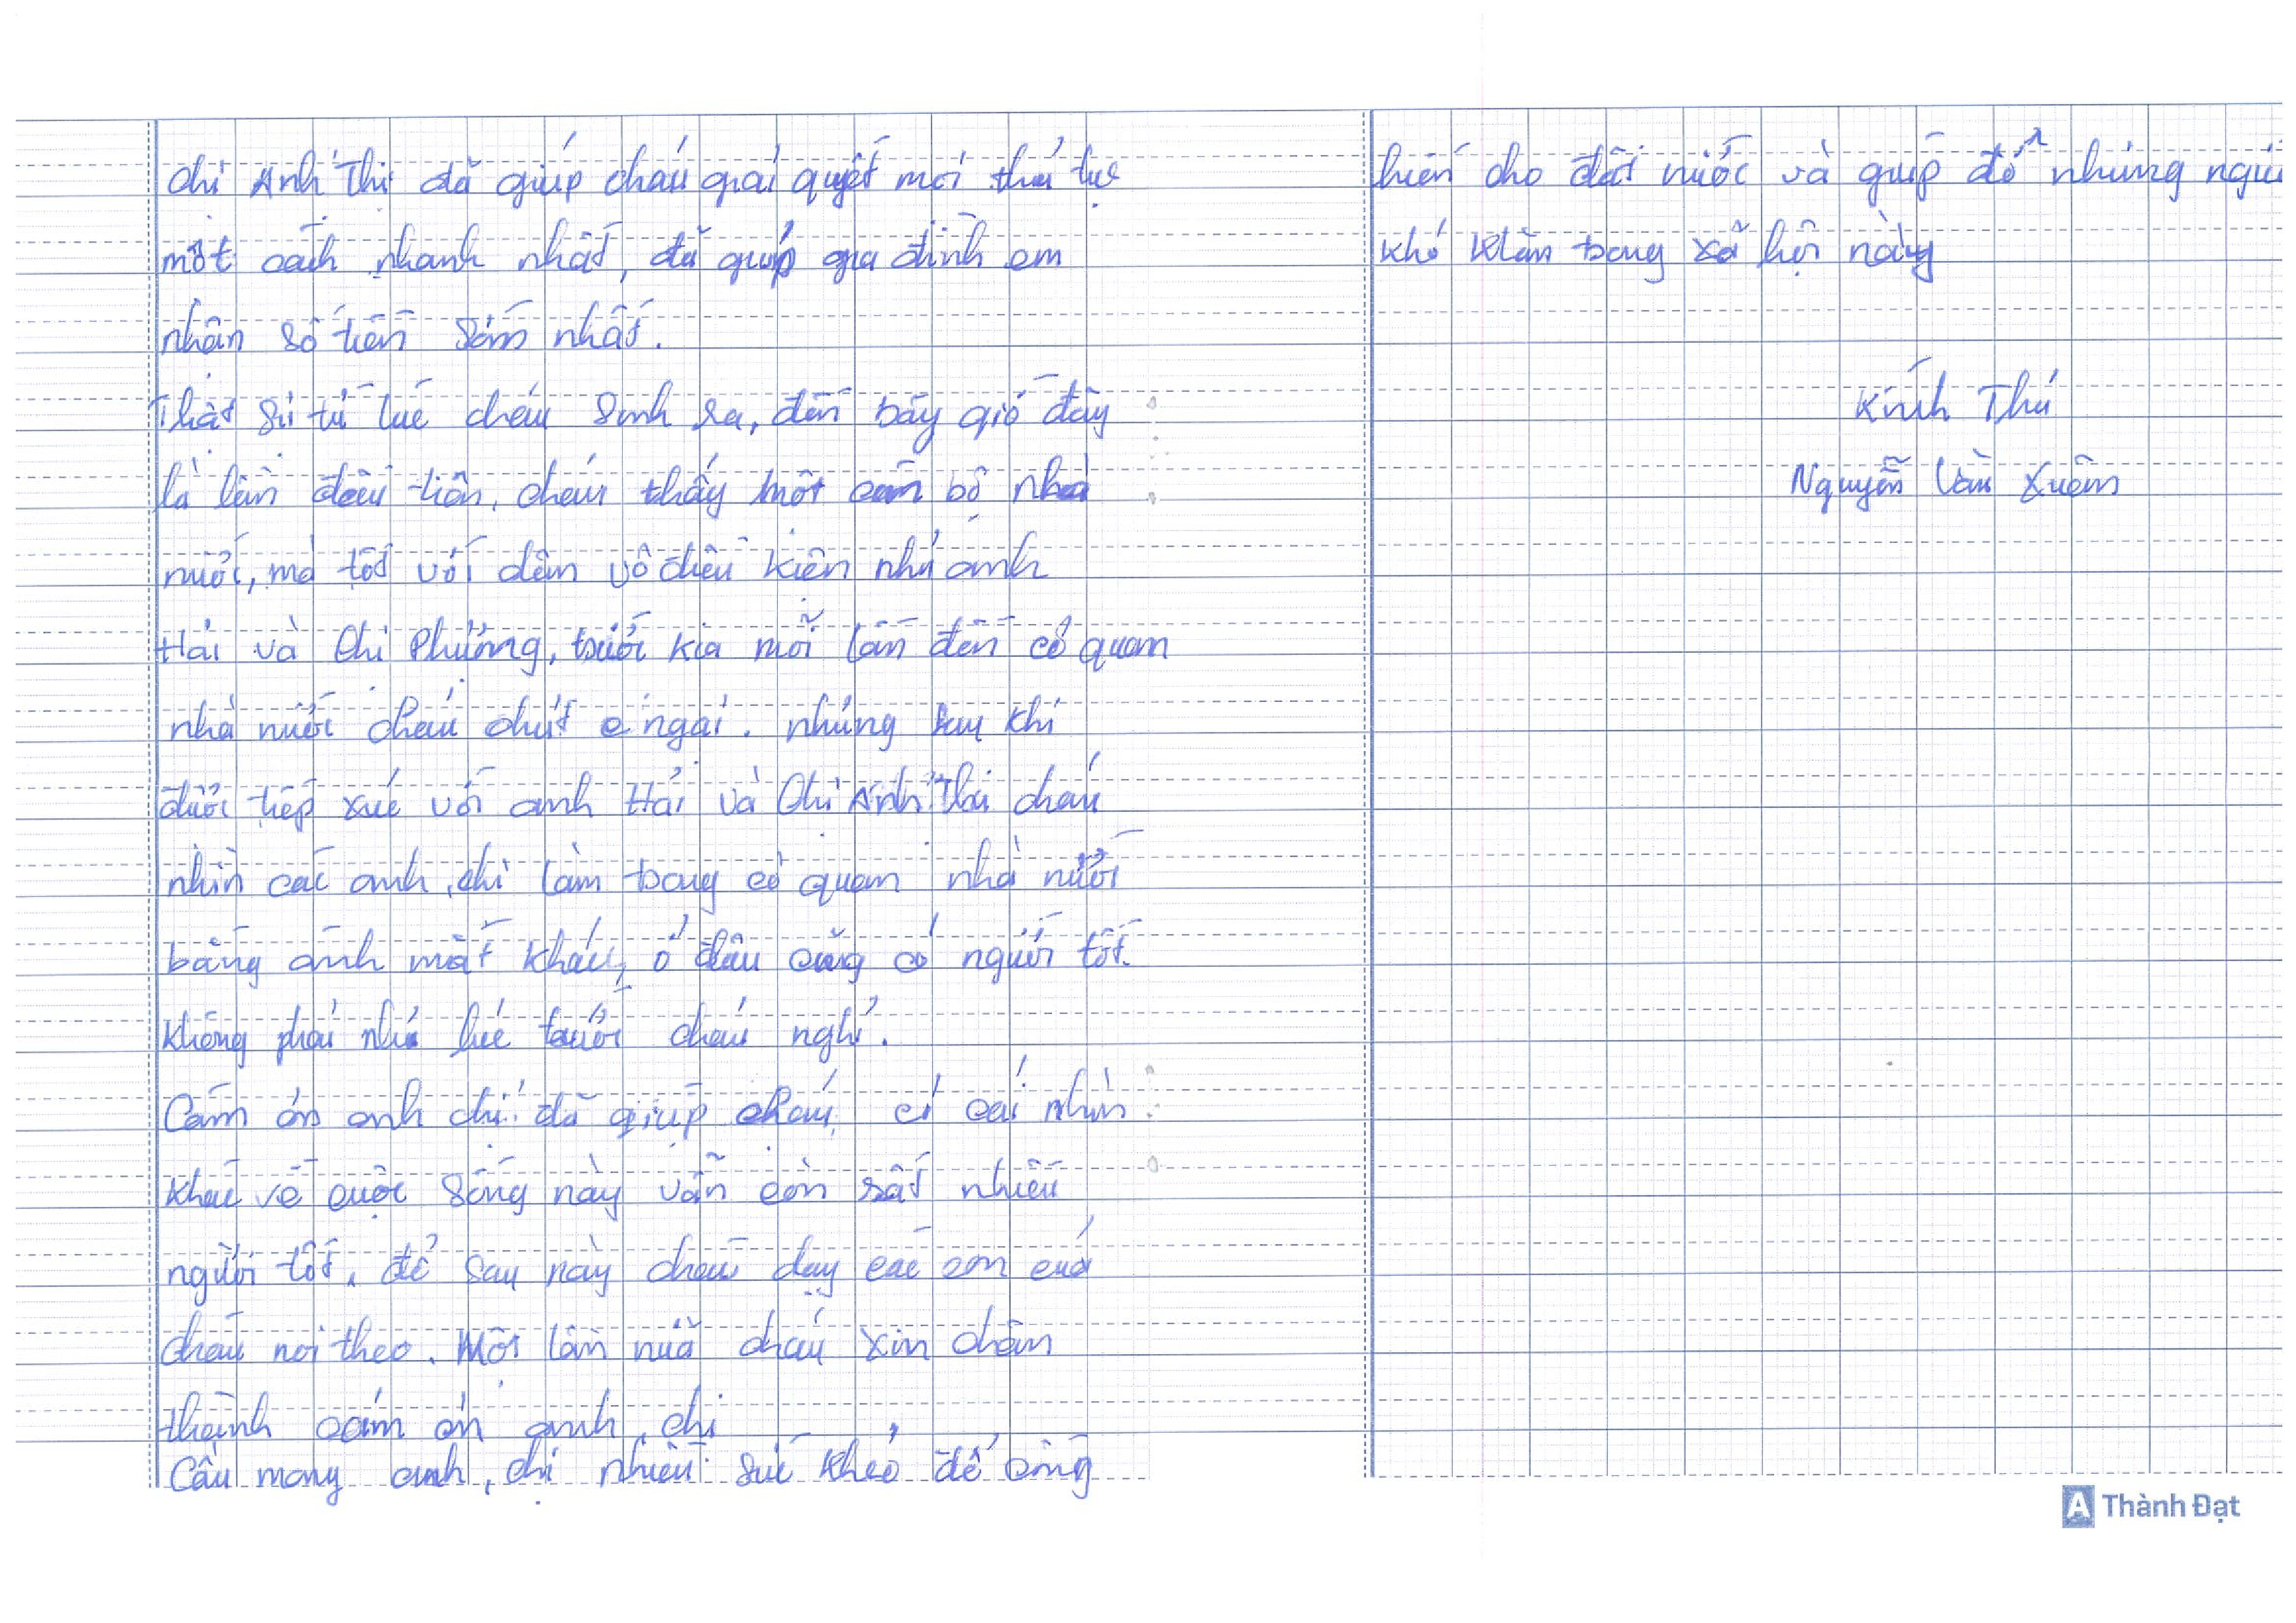 Chị Anh Thị đã giúp cháu giải quyết mọi thủ tục
một cách nhanh nhất, đã giúp gia đình em
nhận số tiền sớm nhất.
Thật sự từ lúc cháu sinh ra, đến bây giờ đây
là lần đầu tiên, cháu thấy một cán bộ nhà
nước, mà tốt với dân vô điều kiện như anh
Hải và Chị Phương, trước kia mỗi lần đến cơ quan
nhà nước cháu chút e ngại. nhưng sau khi
được tiếp xúc với anh Hải và Chị Anh Thi cháu
nhìn các anh, chị làm trong cơ quan nhà nước
bằng ánh mắt khác, ở đâu cũng có người tốt.
Không phải như lúc trước cháu nghĩ.
Cám ơn anh chị đã giúp cháu, có cái nhìn
khác về cuộc sống này vẫn còn rất nhiều
người tốt, để sau này cháu dạy các con cuả
cháu noi theo. Một lần nữa cháu xin chân
thành cám ơn anh, chị
Cầu mong anh, chị nhiều sức khỏe để cống
hiến cho đất nước và giúp đỡ những người
khó khăn trong xã hội này
Kính Thư
Nguyễn Văn Xuêm
A Thành Đạt